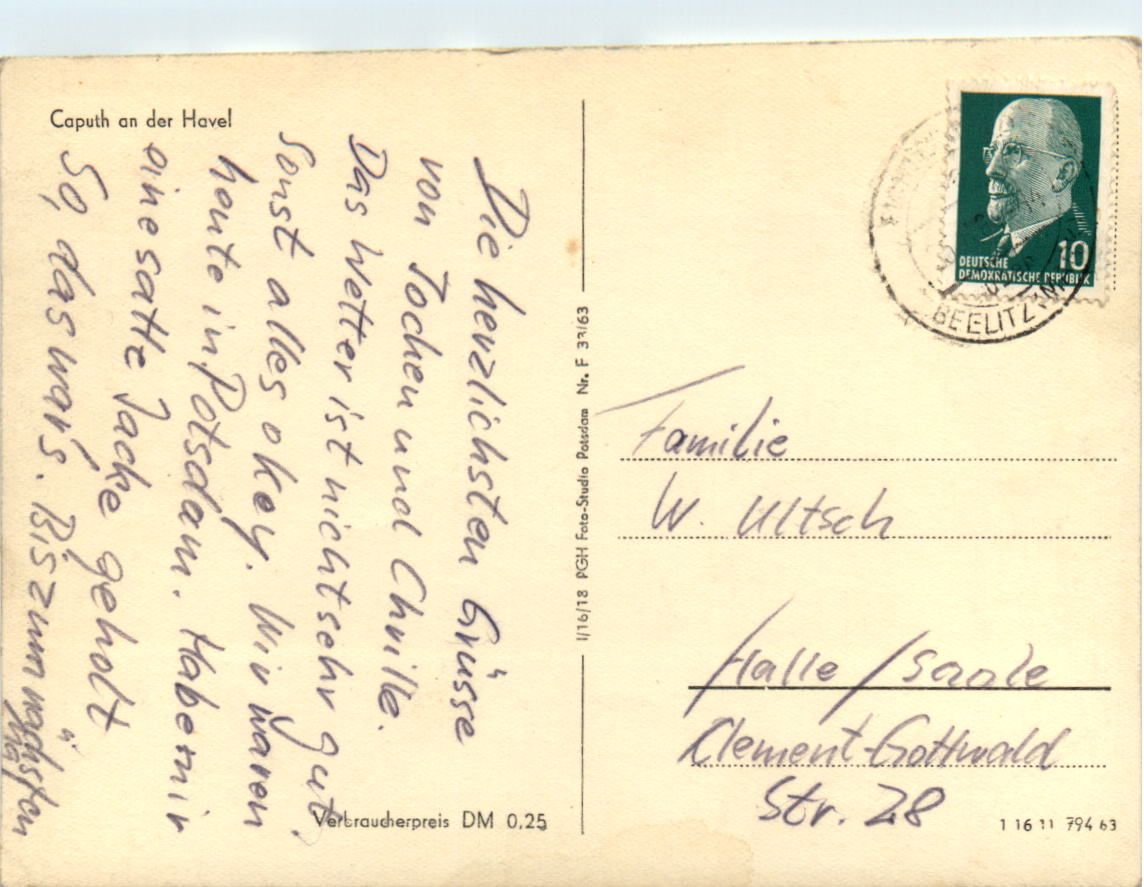 Caputh an der Havel
Die herzlichsten Grüsse
von Jochen und Chrille.
Das Wetter ist nicht sehr gut
sonst alles okey. Wir waren
heute in Potsdam. Habe mir
eine satte Jacke geholt
So, das war's. Bis zum nächsten
Verbraucherpreis DM 0,25
I/16/18 PGH Foto-Studio Potsdam Nr. F 33/63
DEUTSCHE
DEMOKRATISCHE REPUBLIK
10
BEELITZ
Familie
W. Ultsch
Halle/Saale
Clement-Gottwald
Str. 28
1 16 11 794 63